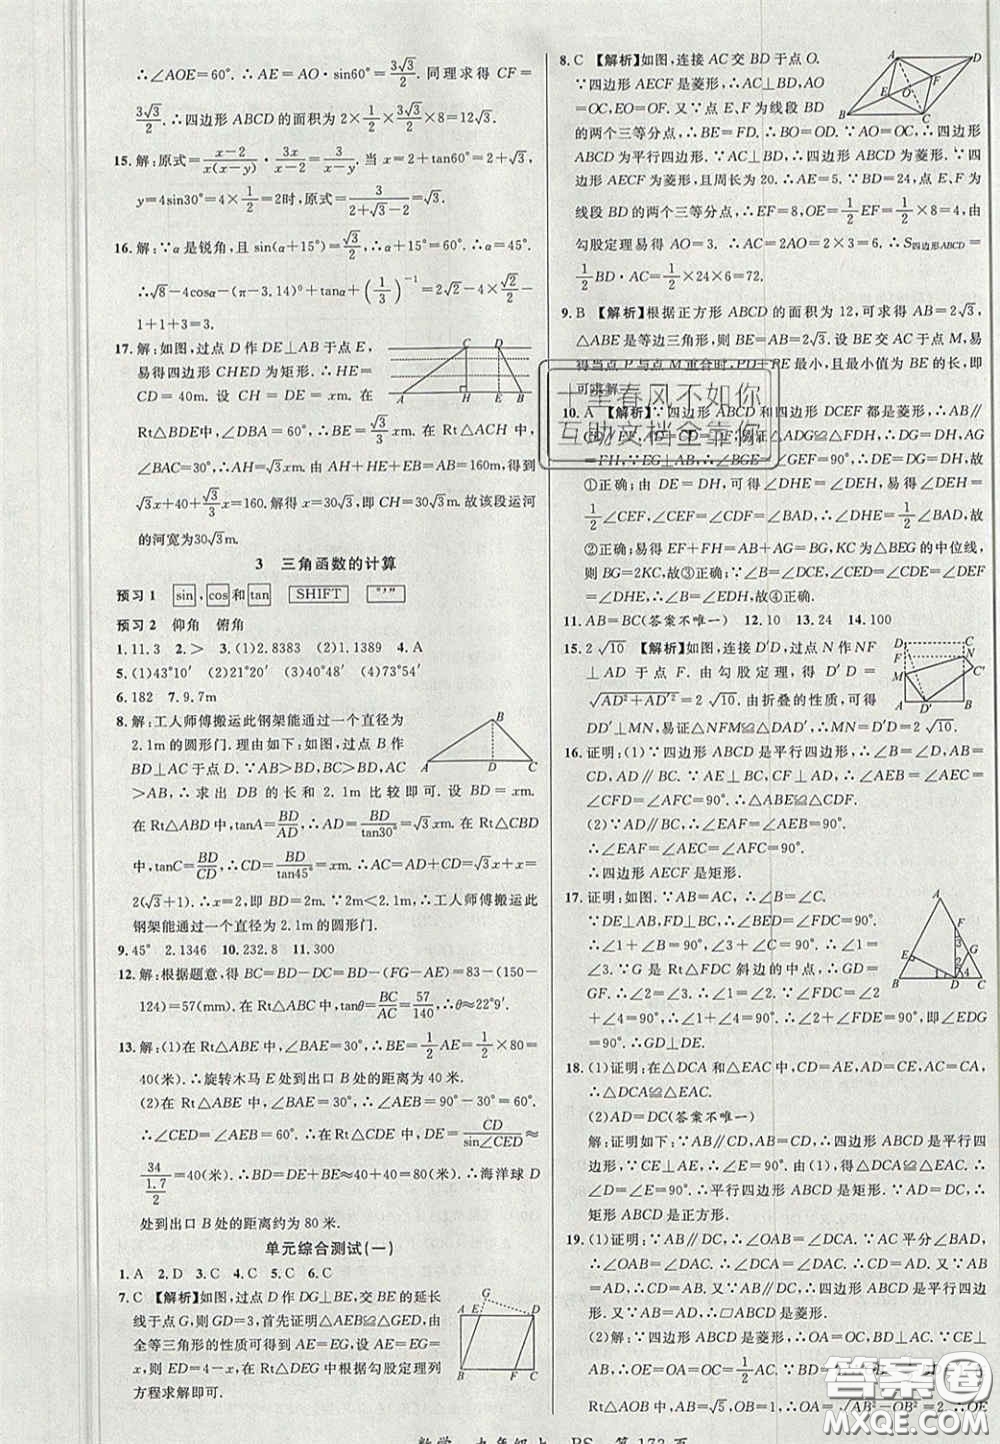 ∴∠AOE=60°.∴AE=AO·sin60°=3√3/2.同理求得 CF=
3√3/2.∴四边形 ABCD 的面积为 2×1/2×3√3/2×8=12√3.
15.解:原式=(x-2)/(x(x-y))·3x/(x-2)=3/(x-y).当 x=2+tan60°=2+√3,
y=4sin30°=4×1/2=2时,原式=3/(2+√3-2)=√3.
16.解:∵α是锐角,且 sin(α+15°)=√3/2,∴α+15°=60°.∴α=45°.
∴√8-4cosα-(π-3.14)⁰+tanα+(1/3)⁻¹=2√2-4×√2/2-
1+1+3=3.
17.解:如图,过点 D 作 DE⊥AB 于点 E,
易得四边形 CHED 为矩形.∴HE=
CD=40m.设 CH=DE=xm.在
Rt△BDE中,∵∠DBA=60°,∴BE=√3/3xm.在 Rt△ACH 中,
∵∠BAC=30°,∴AH=√3xm.由 AH+HE+EB=AB=160m,得到
√3x+40+√3/3x=160.解得 x=30√3,即 CH=30√3m.故该段运河
的河宽为30√3m.
3 三角函数的计算
预习1 sin,cos和tan SHIFT °′″
预习2 仰角 俯角
1.11.3 2.> 3.(1)2.8383 (2)0.3089 4.A
5.(1)43°10′ (2)21°48′ (3)20°48′ (4)73°54′
6.182 7.9.7m
8.解:工人师傅搬运此钢架能通过一个直径为
2.1m的圆形门.理由如下:如图,过点 B 作
BD⊥AC于点 D.∵AB>BD,BC>BD,AC
>AB,∴求出 DB 的长和 2.1m 比较即可.设 BD=xm.
在 Rt△ABD中,tanA=BD/AD,∴AD=BD/tan30°=√3xm.在 Rt△CBD 中,
tanC=BD/CD,∴CD=BD/tan45°=xm.∴AC=AD+CD=√3x+x=
2(√3+1).∴x=2.∴BD=2m.∵2m<2.1m,∴工人师傅搬运此
钢架能通过一个直径为 2.1m 的圆形门.
9.45° 2.1346 10.232.8 11.300
12.解:根据题意,得 BC=BD-DC=BD-(FG-AE)=83-(150-
124)=57(mm).在 Rt△ABC 中,tanθ=BC/AC=57/140,∴θ≈22°9′.
13.解:(1)在 Rt△ABE 中,∠BAE=30°,∴BE=1/2AB=1/2×80=
40(米).∴旋转木马 E 处到出口 B 处的距离为 40 米.
(2)在 Rt△ABE 中,∵∠BAE=30°,∴∠AEB=90°-30°=60°.
∴∠CED=∠AEB=60°.∴在 Rt△CDE 中,DE=CD/sin∠CED≈
34/(1.7/2)=40(米).∴BD=DE+BE≈40+40=80(米).∴海洋球 D
处到出口 B 处的距离约为 80 米.
单元综合测试(一)
1.A 2.D 3.C 4.C 5.C 6.C
7.C 【解析】如图,过点 D 作 DG⊥BE,交 BE 的延长
线于点 G,则 GD=3,首先证明△AEB≌△GED,由
全等三角形的性质可得到 AE=EG,设 AE=EG=
x,则 ED=4-x,在 Rt△DEG 中根据勾股定理列
方程求解即可.
8.C 【解析】如图,连接 AC交 BD于点 O.
∵四边形 AECF 是菱形,∴AC⊥BD,AO
=OC,EO=OF.又∵点 E,F 为线段 BD
的两个三等分点,∴BE=FD.∴BO=OD.∵AO=OC,∴四边形
ABCD为平行四边形.∵AC⊥BD,∴四边形 ABCD为菱形.∵四边
形 AECF 为菱形,且周长为 20.∴AE=5.∵BD=24,点 E、F为
线段 BD 的两个三等分点,∴EF=8,OE=1/2EF=1/2×8=4.由
勾股定理易得 AO=3.∴AC=2AO=2×3=6.∴S四边形ABCD
=1/2BD·AC=1/2×24×6=72.
9.B 【解析】根据正方形 ABCD 的面积为 12,可求得 AB=2√3,
△ABE 是等边三角形,所以 BE=AB=2√3.设 BE 交 AC 于点 M,易
得当点 P 与点 M 重合时,PD+PE 最小,且最小值为 BE 的长,即
可求解.
10.A 【解析】∵四边形 ABCD 和四边形 DCEF 都是菱形,∴AB∥
FH,∵EG⊥AB,∴∠BGE=∠GEF=90°,∴EG⊥FH,故
①正确;由 DE=DH,可得∠DHE=∠DEH,易得∠DEH=
1/2∠CEF,∠CDF=∠BAD,∴∠DEH=1/2∠BAD,故
②正确;易得 BG=GK=AK,∴CK 为△BEG 的中位线,
则 BG=2CK,故③正确;由 BG=2CK,BG=AG,易得
AB=4CK,故④正确.
11.AB=BC(答案不唯一) 12.10 13.24 14.100
15.2√10 【解析】如图,连接 D′D,过点 N 作 NF
⊥AD 于点 F.由勾股定理,得 D′D=
√(AD²+AD′²)=2√10.由折叠的性质,可得
DD′⊥MN,易证△NFM≌△DAD′,∴MN=D′D=2√10.
16.证明:(1)∵四边形 ABCD 是平行四边形,∴∠B=∠D,AB=
CD,AD∥BC.∵AE⊥BC,CF⊥AD,∴∠AEB=∠AEC=
∠CFD=∠AFC=90°.∴△ABE≌△CDF.
(2)∵AD∥BC,∴∠EAF=∠AEB=90°.
∴∠EAF=∠AEC=∠AFC=90°.
∴四边形 AECF 是矩形.
17.证明:如图.∵AB=AC,∴∠B=∠C.
∵DE⊥AB,FD⊥BC,∴∠BED=∠FDC=90°.
∴∠1+∠B=90°,∠3+∠C=90°.∴∠1=
∠3.∵G 是 Rt△FDC 斜边的中点,∴GD=
GF.∴∠2=∠3.∴∠1=∠2.
∵∠FDC=∠2+∠4=90°,∴∠1+∠4=90°.
∴∠2+∠FDE=90°.即∠EDG
=90°.∴GD⊥DE.
18.(1)证明:在△DCA 和△EAC 中,CD=AE,AD=CE,AC=CA,
∴△DCA≌△EAC.
(2)AD=DC(答案不唯一)
解:证明如下:∵AB∥CD,AB=CD,∴四边形 ABCD 是平行四
边形.∵CE⊥AE,∴∠E=90°.由(1)得△DCA≌△EAC,
∴∠D=∠E=90°.∴平行四边形 ABCD 为矩形.∵AD=DC,
∴矩形 ABCD 是正方形.
19.(1)证明:∵AB∥CD,∴∠OAB=∠DCA.∵AC 平分∠BAD,
∴∠OAB=∠DAC.∴∠DCA=∠DAC.∴CD=AD.∵AB=AD,
∴AB=CD.∵AB∥CD,∴四边形 ABCD 是平行四
边形.∵AD=AB,∴▱ABCD 是菱形.
(2)解:∵四边形 ABCD 是菱形,∴OA=OC,BD⊥AC.∵CE
⊥AB,∴OE=OA=OC=1/2AC.∵BD=2,∴OB=1/2BD=1.在
Rt△AOB 中,AB=√5,OB=1,∴OA=√(AB²-OB²)=2.∴OE
十里春风不如你
互助文档全靠你
答案圈
MXQE.COM
数学 九年级上 BS 第 173 页